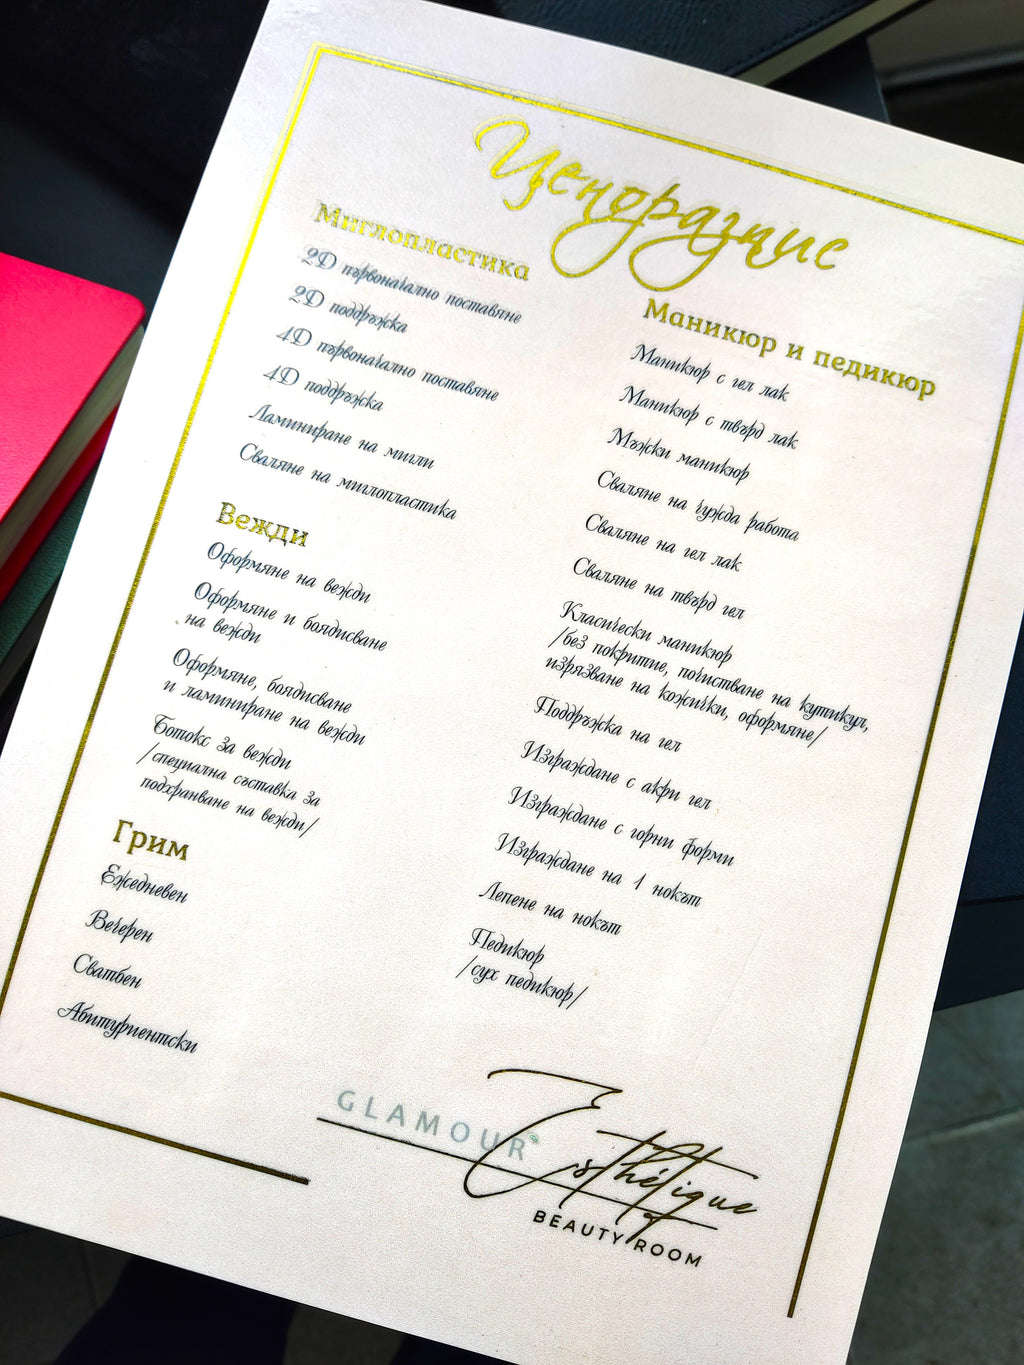 Ценоразпис
Миглопластика
2D първоначално поставяне
2D поддръжка
4D първоначално поставяне
4D поддръжка
Ламиниране на мигли
Сваляне на миглопластика
Вежди
Оформяне на вежди
Оформяне и боядисване
на вежди
Оформяне, боядисване
и ламиниране на вежди
Ботокс за вежди
/специална съставка за
подхранване на вежди/
Грим
Ежедневен
Вечерен
Сватбен
Абитуриентски
Маникюр и педикюр
Маникюр с гел лак
Маникюр с твърд лак
Мъжки маникюр
Сваляне на чужда работа
Сваляне на гел лак
Сваляне на твърд гел
Класически маникюр
/без покритие, почистване на кутикул,
изрязване на кожички, оформяне/
Поддръжка на гел
Изграждане с акри гел
Изграждане с горни форми
Изграждане на 1 нокът
Лепене на нокът
Педикюр
/сух педикюр/
GLAMOUR
Esthétique
BEAUTY ROOM